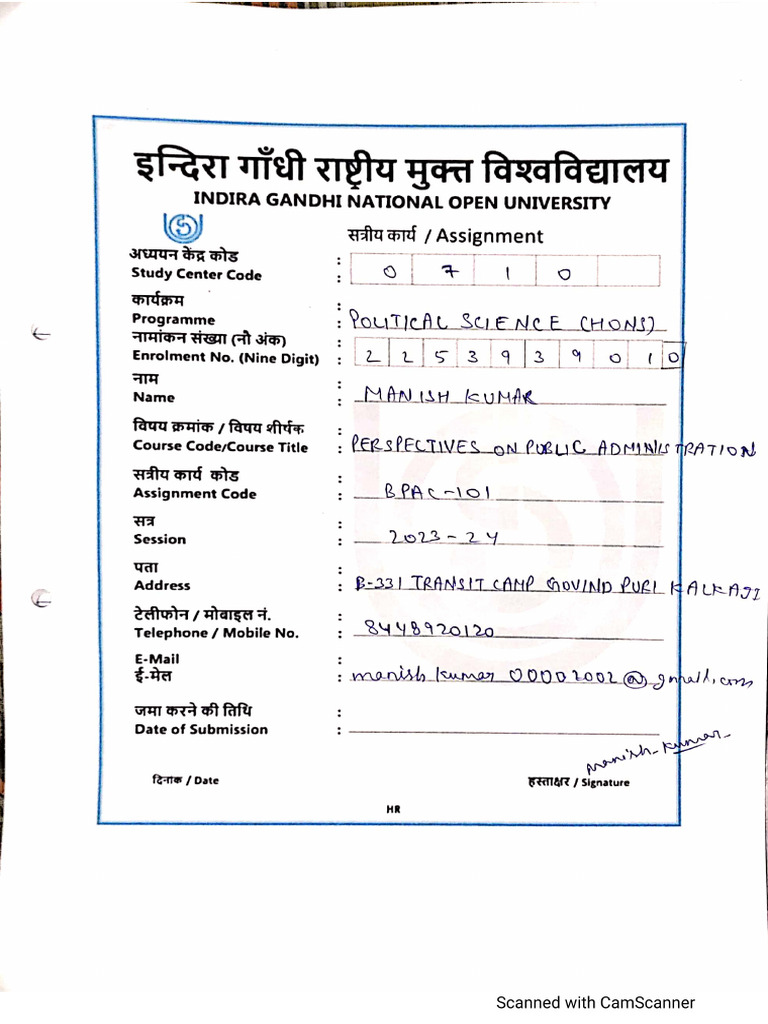 इन्दिरा गाँधी राष्ट्रीय मुक्त विश्वविद्यालय
INDIRA GANDHI NATIONAL OPEN UNIVERSITY
सत्रीय कार्य / Assignment
अध्ययन केंद्र कोड :
Study Center Code : 0 7 1 0
कार्यक्रम :
Programme : POLITICAL SCIENCE (HONS)
नामांकन संख्या (नौ अंक)
Enrolment No. (Nine Digit) : 2 2 5 3 9 3 9 0 1 0
नाम :
Name : MANISH KUMAR
विषय क्रमांक / विषय शीर्षक :
Course Code/Course Title : PERSPECTIVES ON PUBLIC ADMINISTRATION
सत्रीय कार्य कोड :
Assignment Code : BPAC-101
सत्र :
Session : 2023-24
पता :
Address : B-331 TRANSIT CAMP GOVIND PURI KALKAJI
टेलीफोन / मोबाइल नं. :
Telephone / Mobile No. : 8448920120
E-Mail :
ई-मेल : manish kumar 00002002@gmail.com
जमा करने की तिथि :
Date of Submission :
manish kumar
दिनाक / Date हस्ताक्षर / Signature
HR
Scanned with CamScanner